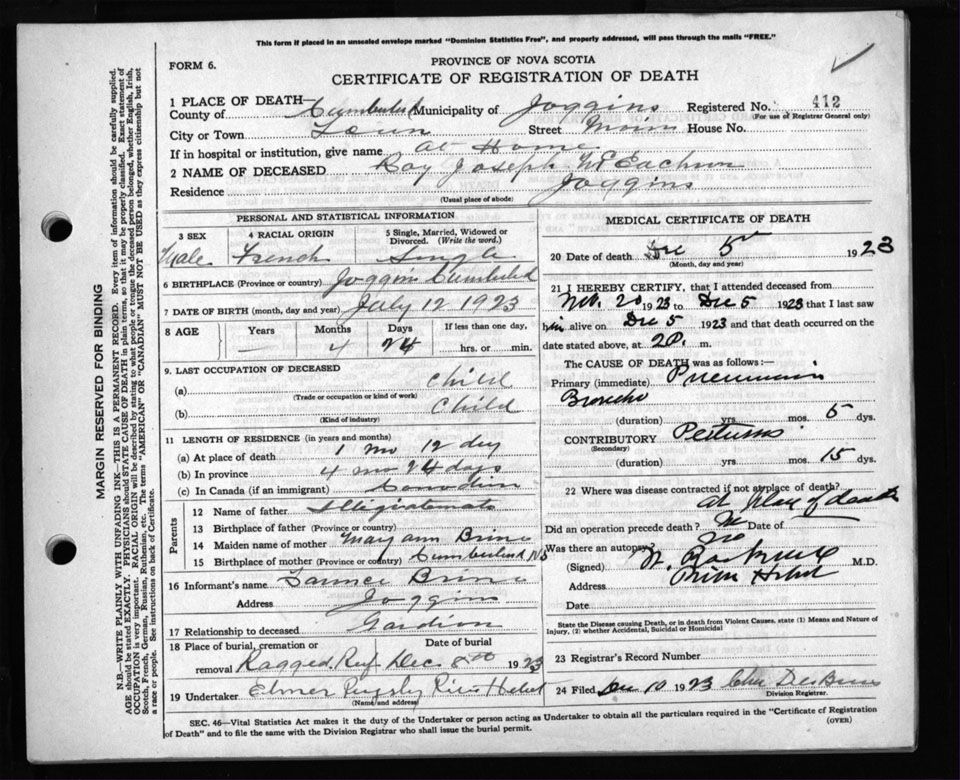 This form if placed in an unsealed envelope marked "Dominion Statistics Free", and properly addressed, will pass through the mails "FREE."
FORM 6.
PROVINCE OF NOVA SCOTIA
CERTIFICATE OF REGISTRATION OF DEATH
1 PLACE OF DEATH—
County of Cumberland Municipality of Joggins Registered No. 412
(For use of Registrar General only)
City or Town Town Street Main House No.
If in hospital or institution, give name at Home
2 NAME OF DECEASED Roy Joseph McEachern
Residence Joggins
(Usual place of abode)
PERSONAL AND STATISTICAL INFORMATION
3 SEX 4 RACIAL ORIGIN 5 Single, Married, Widowed or Divorced. (Write the word.)
Male French Single
6 BIRTHPLACE (Province or country) Joggins Cumberland
7 DATE OF BIRTH (month, day and year) July 12 1923
8 AGE Years Months Days If less than one day,
— 4 24 hrs. or min.
9. LAST OCCUPATION OF DECEASED
(a) child
(Trade or occupation or kind of work)
(b) child
(Kind of industry)
11 LENGTH OF RESIDENCE (in years and months)
(a) At place of death 1 mo 12 day
(b) In province 4 mo 24 days
(c) In Canada (if an immigrant) Canadian
Parents
12 Name of father Illegitimate
13 Birthplace of father (Province or country)
14 Maiden name of mother Mary ann Brine
15 Birthplace of mother (Province or country) Cumberland NS
16 Informant's name Brine
Address Joggins
17 Relationship to deceased Gardion
18 Place of burial, cremation or removal Date of burial
Ragged Reef Dec 8th 1923
19 Undertaker Elmer Pugsley River Hebert
(Name and address)
MEDICAL CERTIFICATE OF DEATH
20 Date of death Dec 5th 1923
(Month, day and year)
21 I HEREBY CERTIFY, that I attended deceased from
Nov. 20 1923 to Dec 5 1923 that I last saw
him alive on Dec 5 1923 and that death occurred on the
date stated above, at 2 P. m.
The CAUSE OF DEATH was as follows:—
Primary (immediate) Pneumonia
Broncho
(duration) yrs. mos. 5 dys.
CONTRIBUTORY Pertussis
(Secondary)
(duration) yrs. mos. 15 dys.
22 Where was disease contracted if not at place of death?
at place of death
Did an operation precede death? No Date of —
Was there an autopsy? No
(Signed) M.D.
Address River Hebert
Date
State the Disease causing Death, or in death from Violent Causes, state (1) Means and Nature of Injury, (2) whether Accidental, Suicidal or Homicidal
23 Registrar's Record Number
24 Filed Dec 10 1923 Chas
Division Registrar.
SEC. 46—Vital Statistics Act makes it the duty of the Undertaker or person acting as Undertaker to obtain all the particulars required in the "Certificate of Registration of Death" and to file the same with the Division Registrar who shall issue the burial permit.
(OVER)
MARGIN RESERVED FOR BINDING
N.B.—WRITE PLAINLY WITH UNFADING INK—THIS IS A PERMANENT RECORD. Every item of information should be carefully supplied.
AGE should be stated EXACTLY. PHYSICIANS should STATE CAUSE OF DEATH in plain terms, so that it may be properly classified. Exact statement of
OCCUPATION is very important. RACIAL ORIGIN will be described by stating to what people or tongue the deceased person belonged, whether English, Irish,
Scotch, French, German, Russian, Ruthenian, etc. The terms "AMERICAN" or "CANADIAN" MUST NOT BE USED as they express citizenship but not
a race or people. See instructions on back of Certificate.